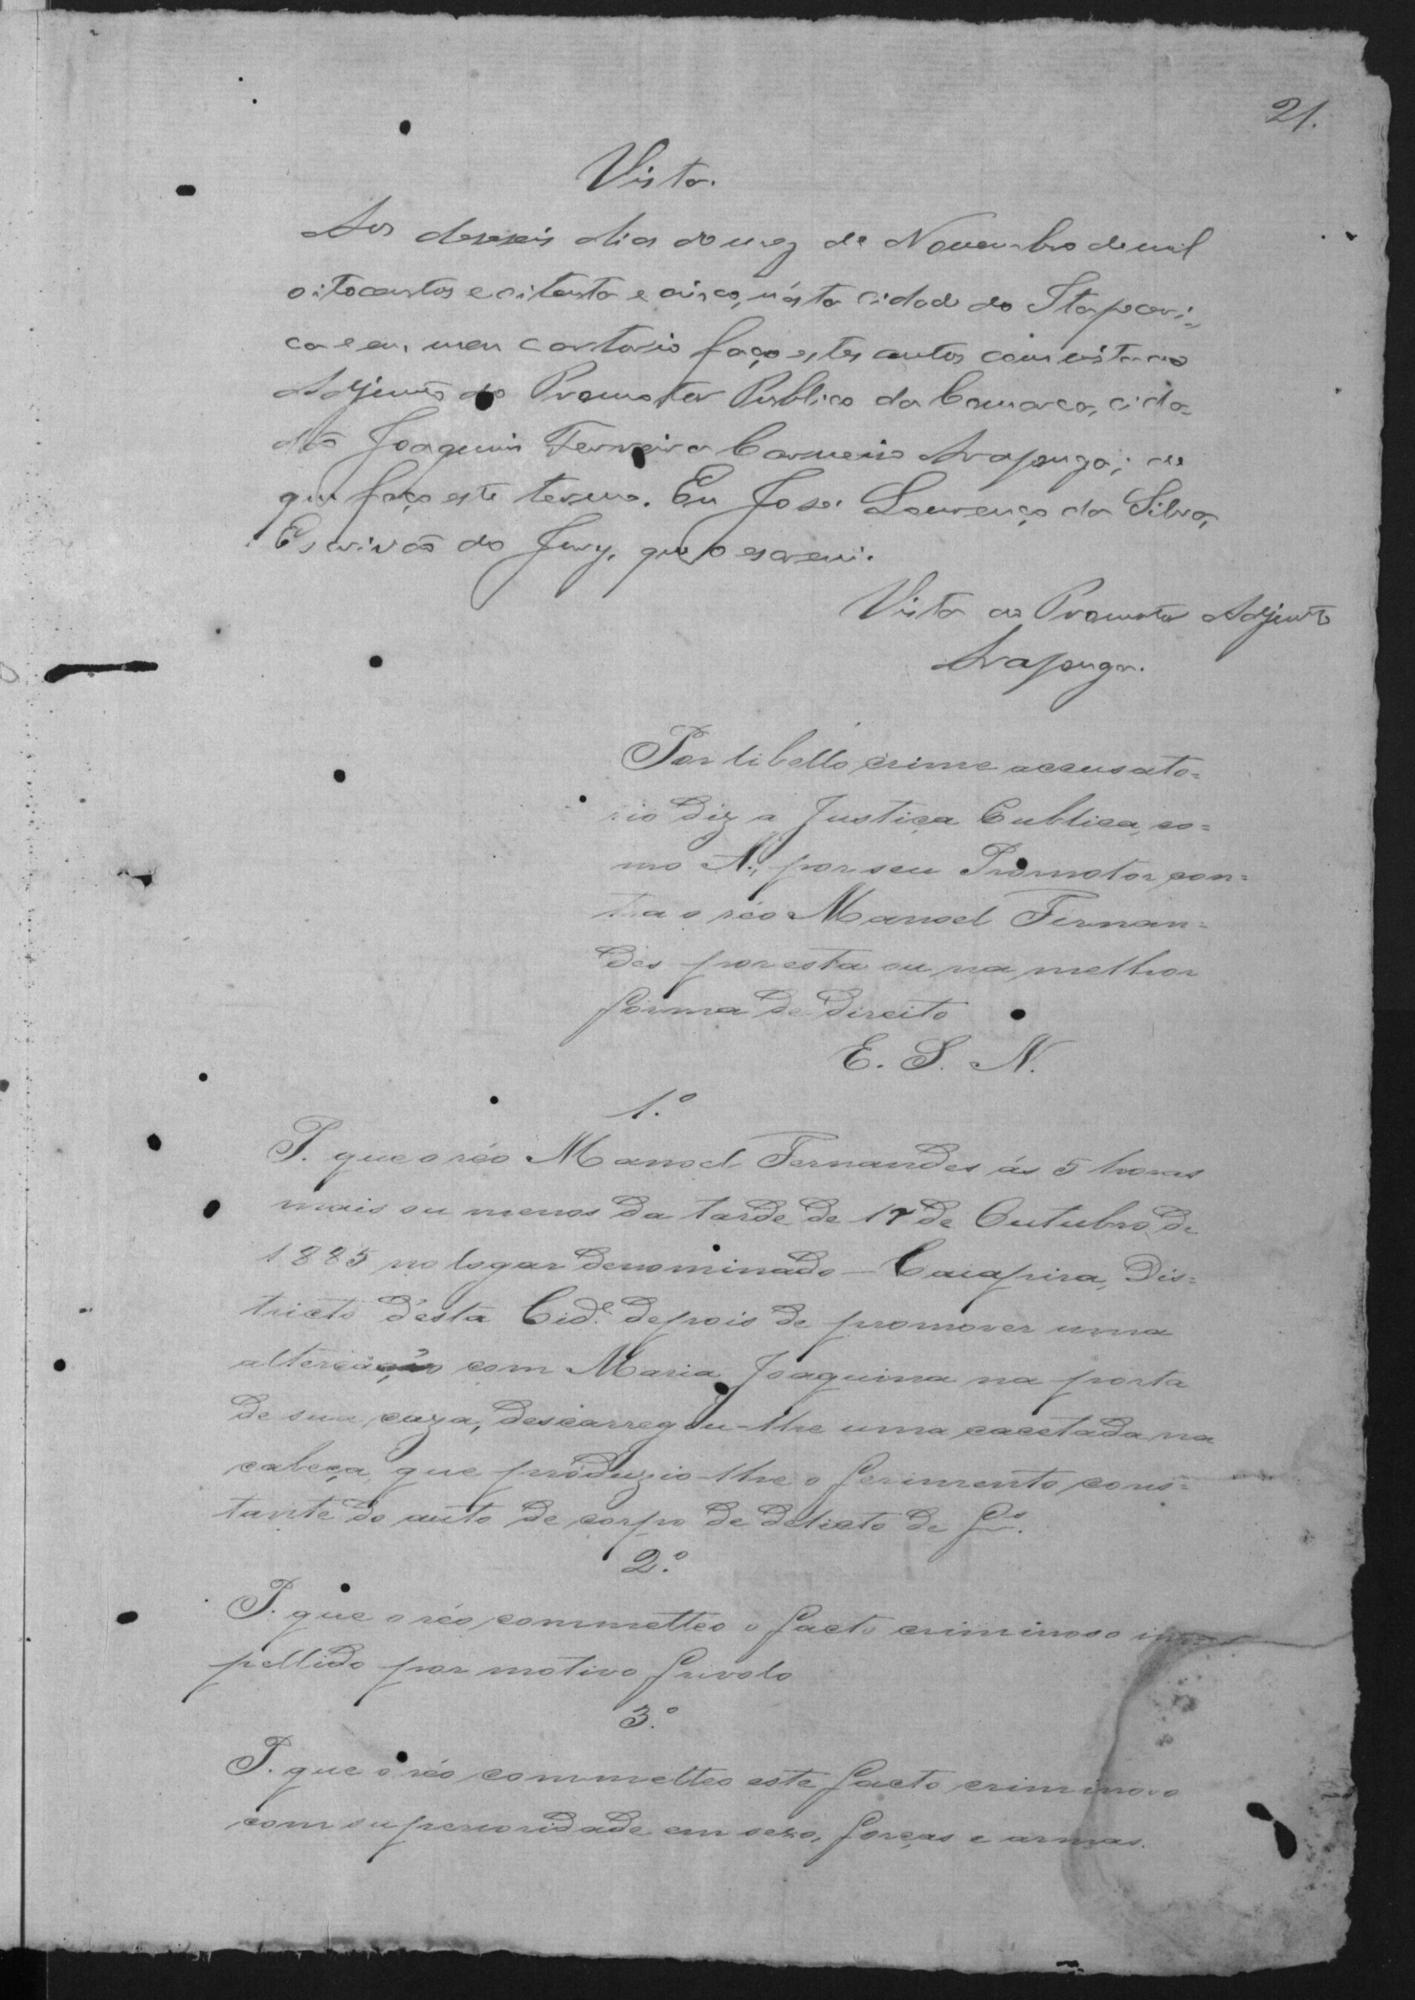 21.
Vista.
Aos deseseis dias do mez de Novembro de mil
oitocentos e oitenta e cinco, n'ésta cidade do Itapeceri-
ca e em meu cartorio faço estes autos com vista ao
Adjunto do Promotor Publico da Comarca, cida-
dão Joaquim Ferreira Carneiro Araponga; do
que faço este termo. Eu José Lourenço da Silva,
Escrivão do Jury, que o escrevi.
Vista ao Promotor Adjunto
Araponga.
Por libello crime accusato=
rio diz a Justiça Publica, co=
mo A., por seu Promotor, con=
tra o réo Manoel Fernan=
des por esta ou na melhor
forma de direito
E. S. N.
1.º
P. que o réo Manoel Fernandes ás 5 horas
mais ou menos da tarde de 17 de Outubro de
1885 no logar denominado — Cacapira, Dis=
tricto d'esta Cid.e depois de promover uma
altercação com Maria Joaquina na porta
de sua caza, descarregou-lhe uma cacetada na
cabeça, que produzio-lhe o ferimento cons=
tante do auto de corpo de delicto de f.s
2.º
P. que o réo commetteo o facto criminoso im
pellido por motivo frivolo
3.º
P. que o réo commetteo este facto criminoso
com superioridade em sexo, forças e armas.